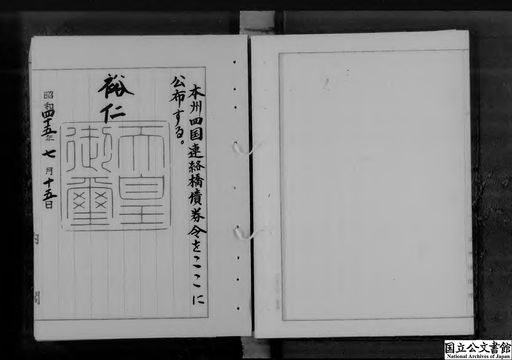 本州四国連絡橋債券令をここに
公布する。
裕仁
天皇
御璽
昭和四十五年七月十五日
内閣
国立公文書館
National Archives of Japan